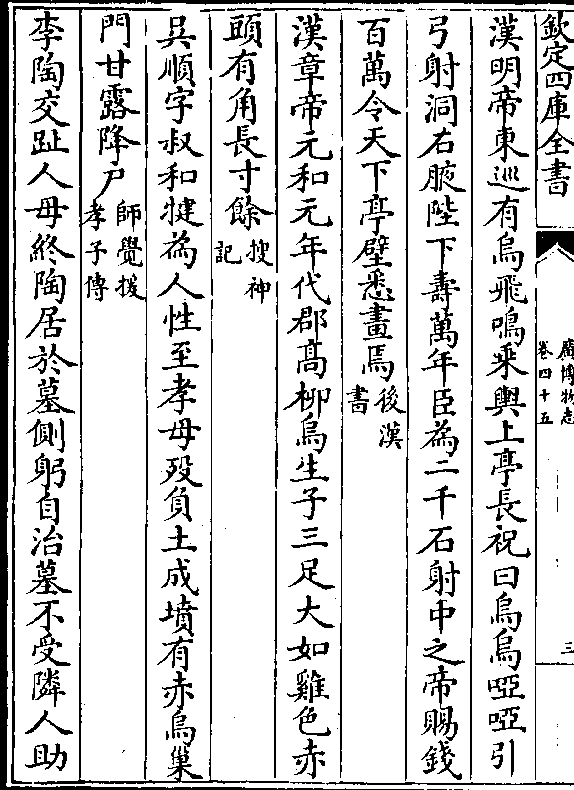 欽定四庫全書
廣博物志
卷四十五
三
漢明帝東巡有烏飛鳴乘輿上亭長祝曰烏烏啞啞引
弓射洞右腋陛下壽萬年臣為二千石射中之帝賜錢
百萬令天下亭壁悉畫焉後漢書
漢章帝元和元年代郡髙柳烏生子三足大如雞色赤
頭有角長寸餘搜神記
吴順字叔和犍為人性至孝母殁負土成墳有赤烏巢
門甘露降户師覺援孝子傳
李陶交趾人母終陶居於墓側躬自治墓不受隣人助